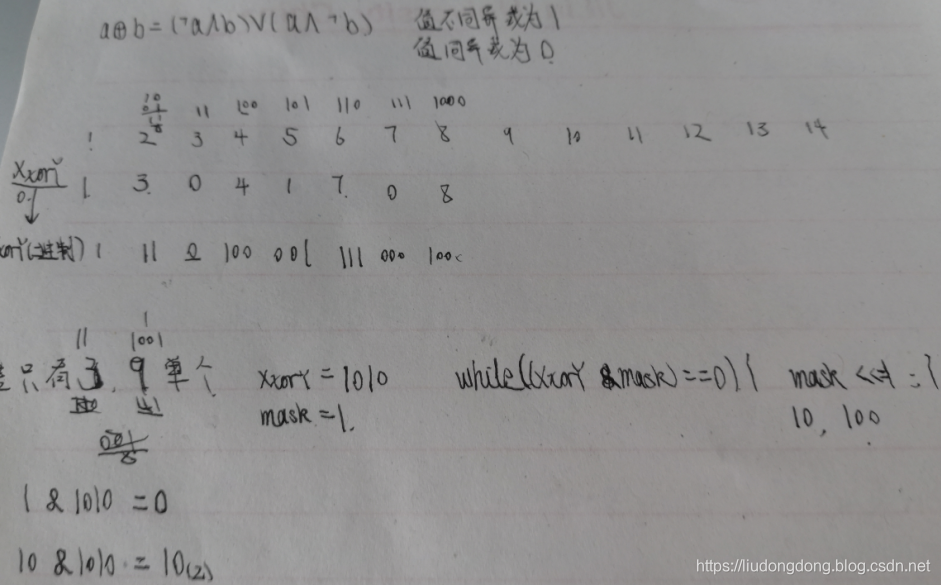 a⊕b=(¬a∧b)∨(a∧¬b) 值不同异或为1
值同异或为0
10 11 100 101 110 111 1000
1 2 3 4 5 6 7 8 9 10 11 12 13 14
XxorY 1 3 0 4 1 7 0 8
0
xorY(二进制) 1 11 0 100 001 111 000 100
11 1001
只有3, 9单个 XxorY = 1010 while((XxorY & mask)==0){ mask <<=1 }
mask = 1. 10, 100
1 & 1010 = 0
10 & 1010 = 10(2)
https://liudongdong.blog.csdn.net